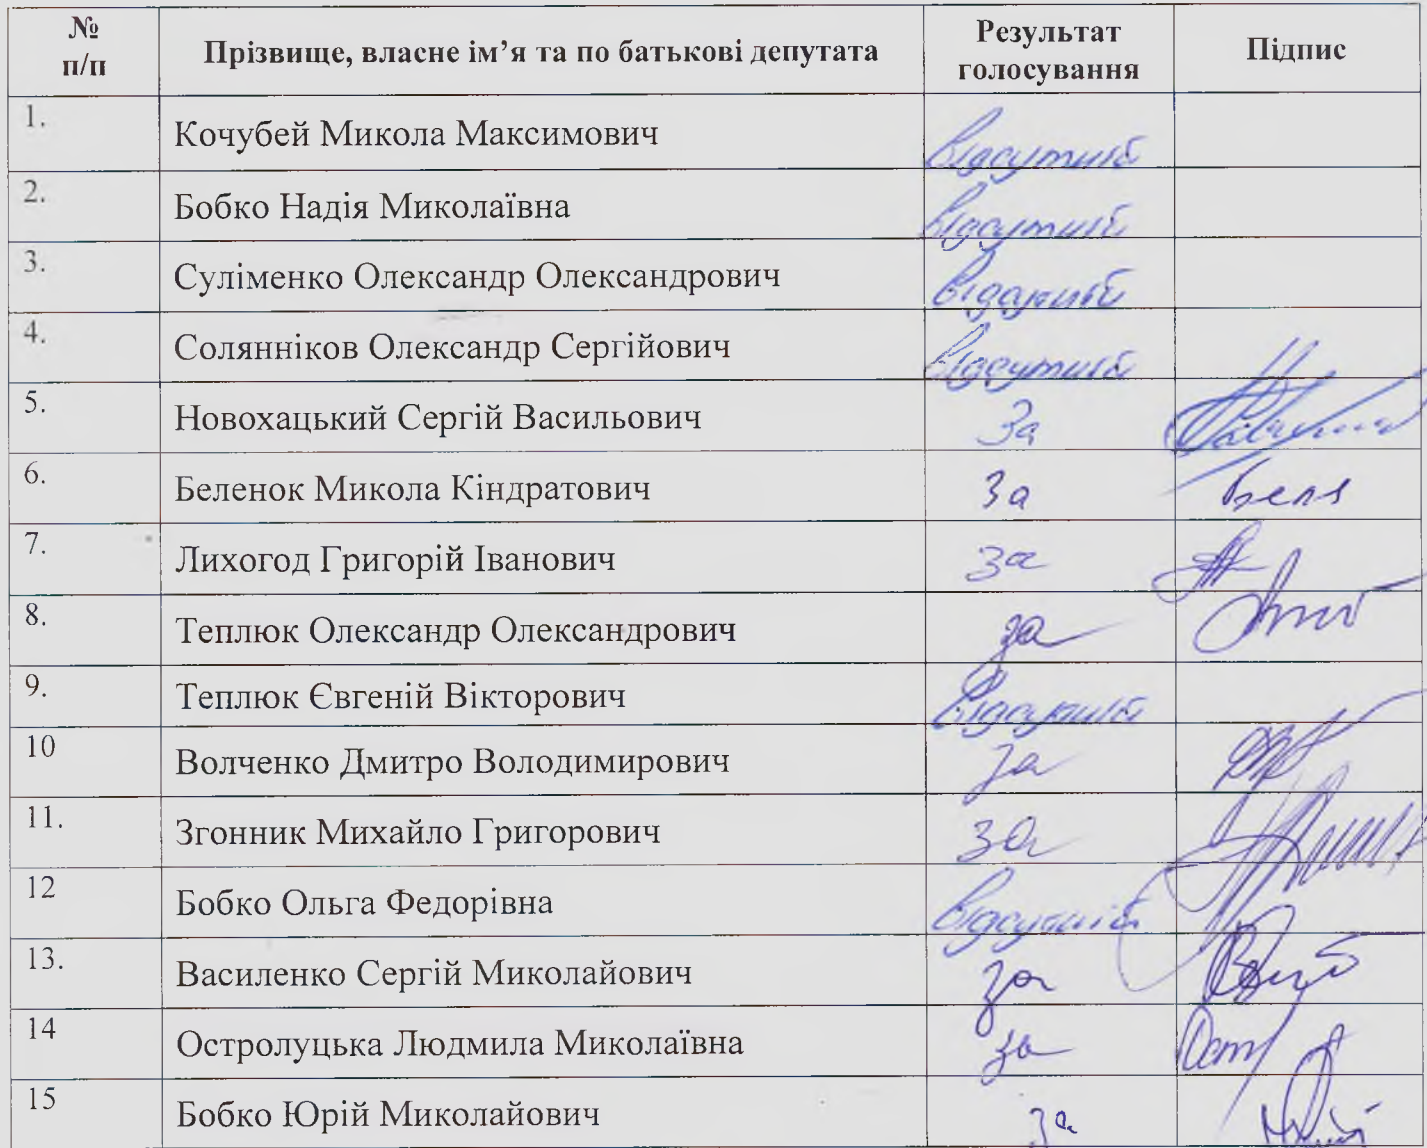 № п/п Прізвище, власне ім’я та по батькові депутата Результат голосування Підпис
1. Кочубей Микола Максимович відсутній
2. Бобко Надія Миколаївна відсутній
3. Суліменко Олександр Олександрович відсутній
4. Солянніков Олександр Сергійович відсутній
5. Новохацький Сергій Васильович За
6. Беленок Микола Кіндратович За
7. Лихогод Григорій Іванович За
8. Теплюк Олександр Олександрович за
9. Теплюк Євгеній Вікторович відсутній
10 Волченко Дмитро Володимирович за
11. Згонник Михайло Григорович за
12 Бобко Ольга Федорівна відсутній
13. Василенко Сергій Миколайович за
14 Остролуцька Людмила Миколаївна за
15 Бобко Юрій Миколайович за